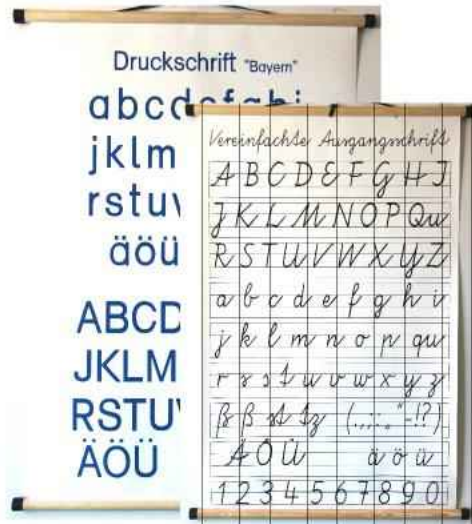 Druckschrift "Bayern"
abcdefghi
jklm
rstuv
äöü
ABCD
JKLM
RSTU
ÄÖÜ
Vereinfachte Ausgangsschrift
A B C D E F G H I
J K L M N O P Qu
R S T U V W X Y Z
a b c d e f g h i
j k l m n o p qu
r s s t u v w x y z
ß ß st tz (.,;:„"-!?)
Ä Ö Ü ä ö ü
1 2 3 4 5 6 7 8 9 0